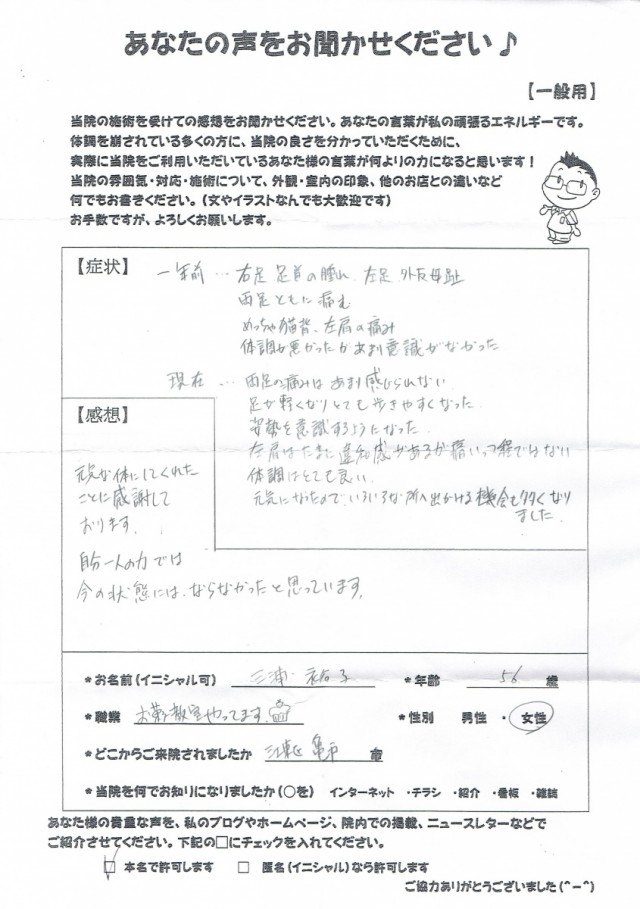 あなたの声をお聞かせください♪
【一般用】
当院の施術を受けての感想をお聞かせください。あなたの言葉が私の頑張るエネルギーです。
体調を崩されている多くの方に、当院の良さを分かっていただくために、
実際に当院をご利用いただいているあなた様の言葉が何よりの力になると思います！
当院の雰囲気・対応・施術について、外観・室内の印象、他のお店との違いなど
何でもお書きください。（文やイラストなんでも大歓迎です）
お手数ですが、よろしくお願いします。
【症状】
一年前 … 右足 足首の腫れ 左足 外反母趾
両足ともに痛む
めっちゃ猫背、左肩の痛み
体調が悪かったがあまり意識がなかった
現在 … 両足の痛みはあまり感じられない
足が軽くなりとても歩きやすくなった
姿勢を意識するようになった
左肩はたまに違和感があるが痛いって程ではない
体調はとても良い
元気になったので、いろいろな所へ出かける機会も多くなり
ました
【感想】
元気な体にしてくれた
ことに感謝して
おります。
自分一人の力では
今の状態には、ならなかったと思っています。
*お名前（イニシャル可） 三浦 裕子 *年齢 56 歳
*職業 お菓子教室やってます *性別 男性 ・ 女性
*どこからご来院されましたか 江東区亀戸
*当院を何でお知りになりましたか（○を） インターネット ・チラシ ・紹介 ・看板 ・雑誌
あなた様の貴重な声を、私のブログやホームページ、院内での掲載、ニュースレターなどで
ご紹介させてください。下記の□にチェックを入れてください。
☑ 本名で許可します □ 匿名（イニシャル）なら許可します
ご協力ありがとうございました（^－^）